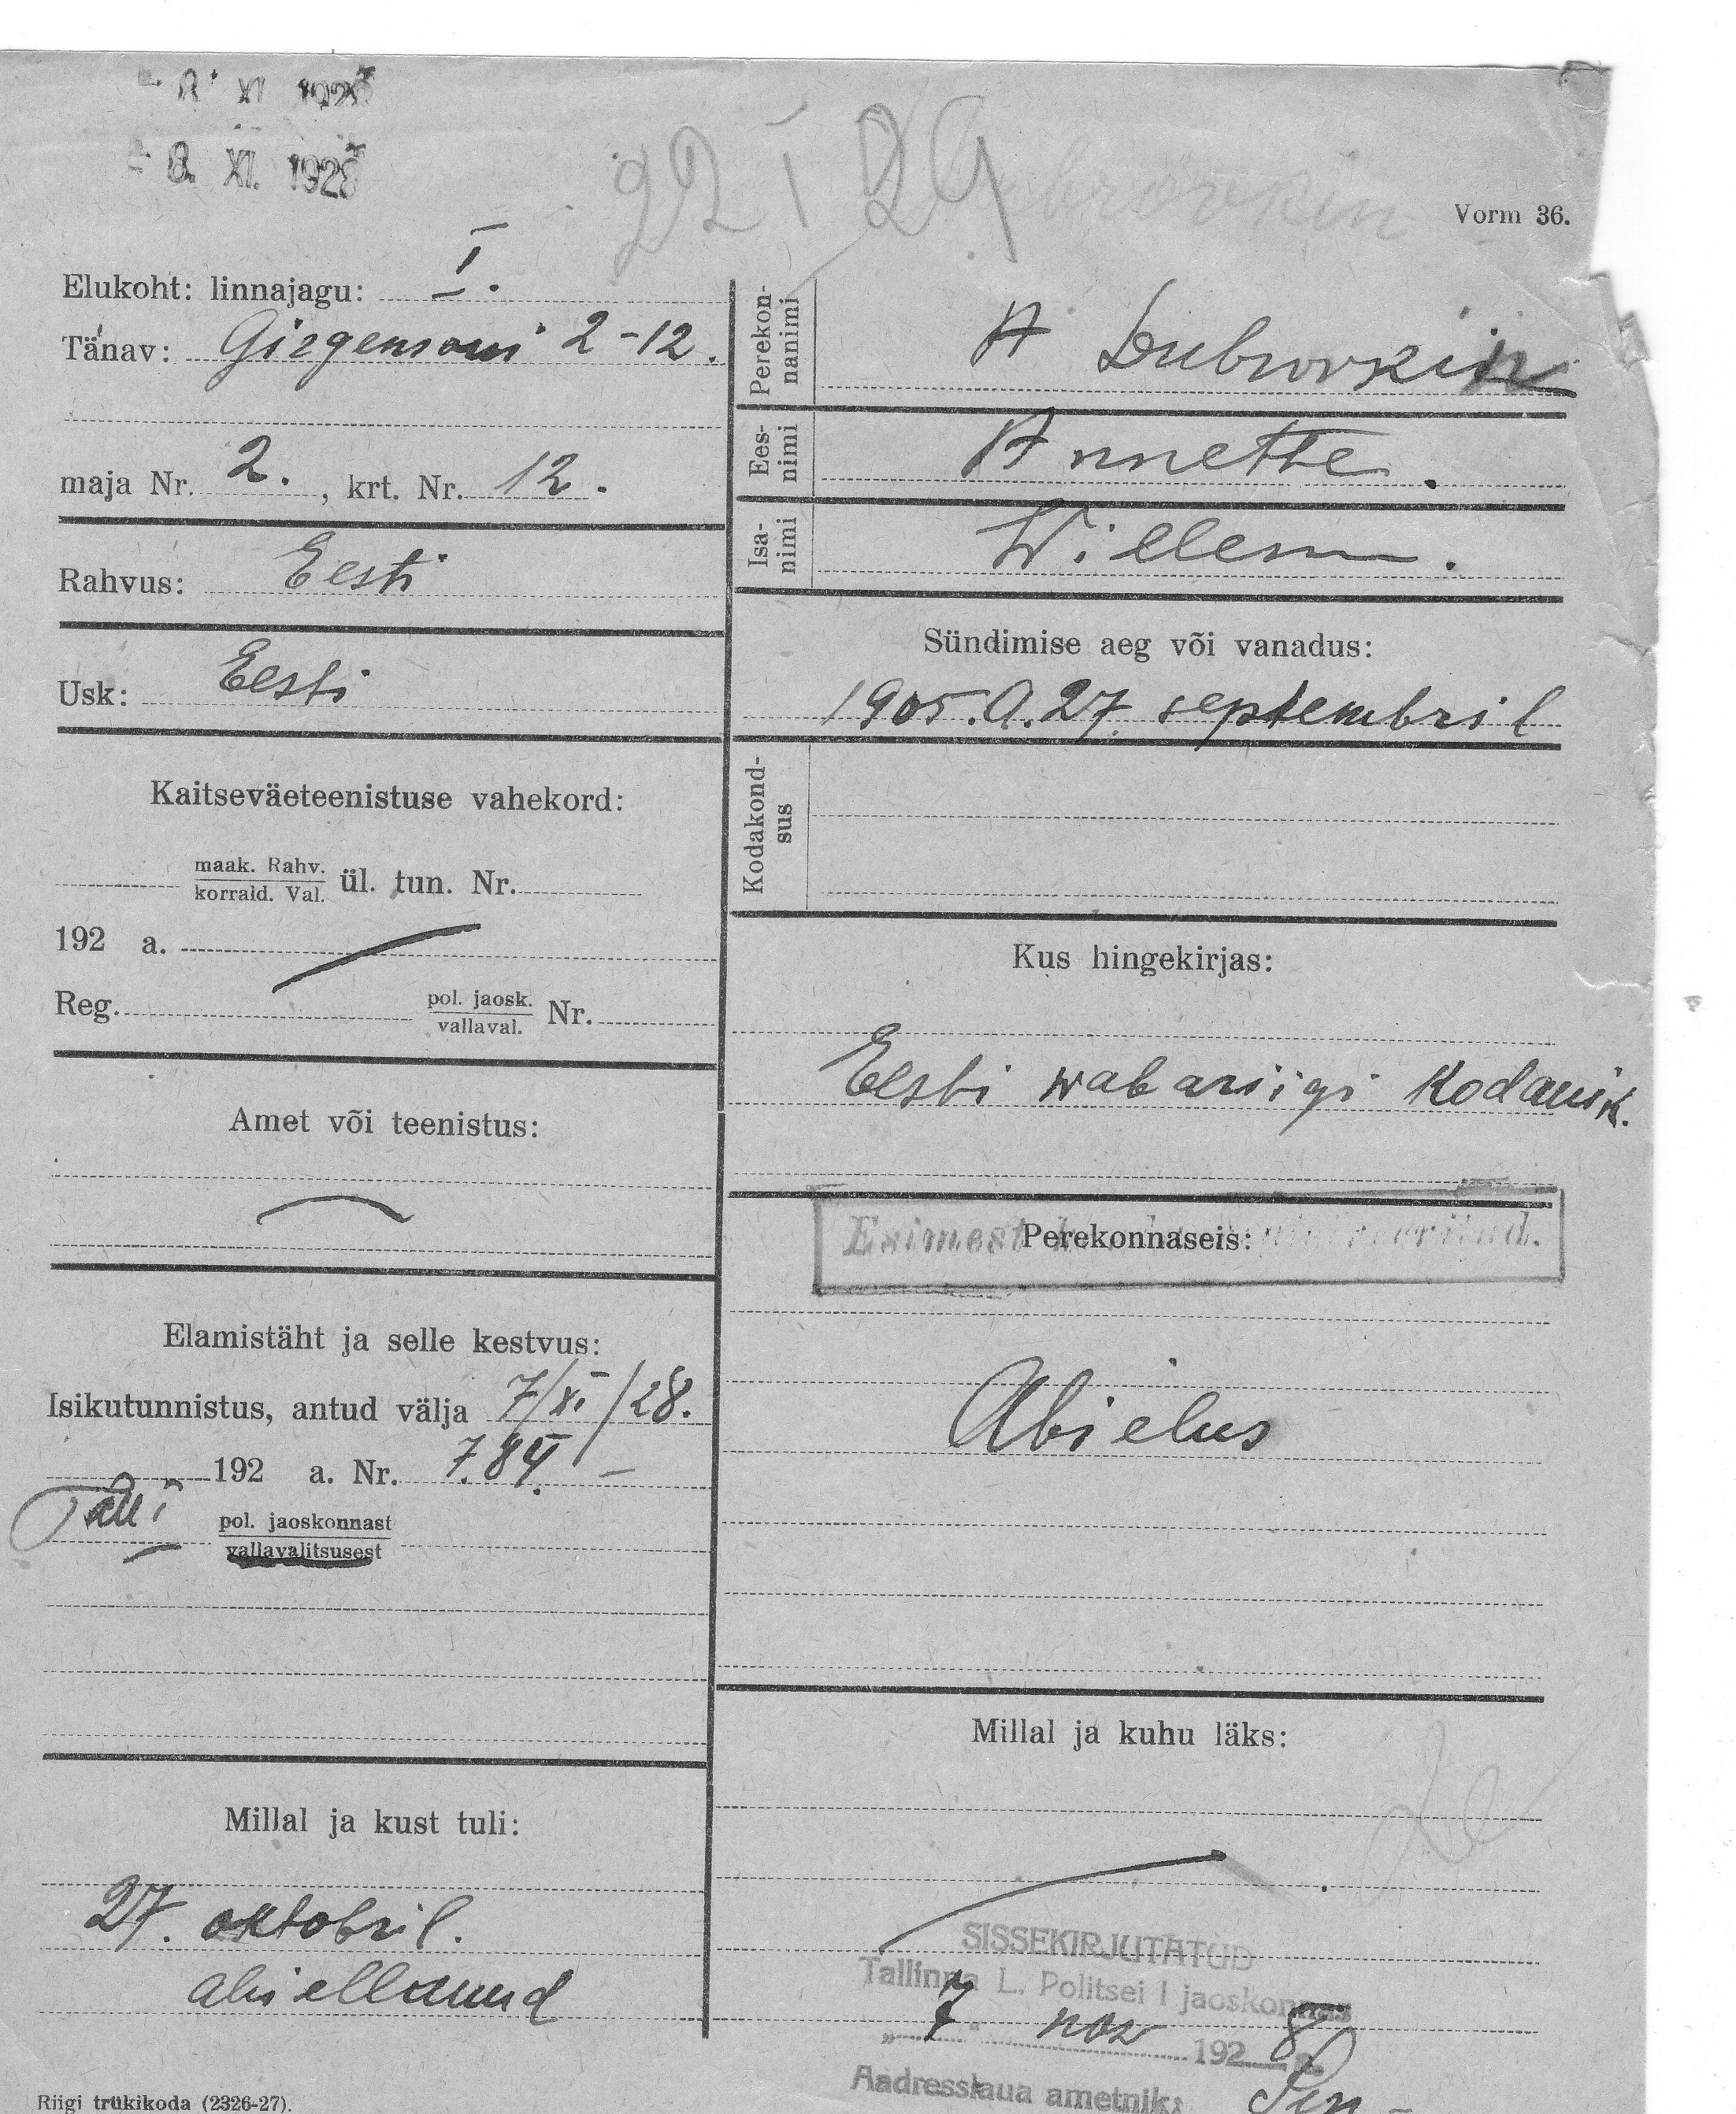 8. XI 1928
8. XI. 1928
22 I 29
Vorm 36.
Elukoht: linnajagu: I.
Tänav: Girgensoni 2-12.
maja Nr. 2. , krt. Nr. 12.
Rahvus: Eesti
Usk: Eesti
Kaitseväeteenistuse vahekord:
maak. Rahv.
korrald. Val.
ül. tun. Nr.
192 a.
Reg.
pol. jaosk.
vallaval.
Nr.
Amet või teenistus:
Elamistäht ja selle kestvus:
Isikutunnistus, antud välja 7/XI/28.
192 a. Nr. 784 –
Tall I
pol. jaoskonnast
vallavalitsusest
Millal ja kust tuli:
27. oktobril.
abiellunud
Riigi trükikoda (2326-27).
Perekon-
nanimi
A Dubrovkin
Ees-
nimi
Annette.
Isa-
nimi
Willem.
Sündimise aeg või vanadus:
1905.a.27. septembril
Kodakond-
sus
Kus hingekirjas:
Eesti wabariigi kodanik.
Esimest
Perekonnaseis:
Abielus
Millal ja kuhu läks:
SISSEKIRJUTATUD
Tallinna L. Politsei I jaoskonnas
„ 7 " nov 1928 a.
Aadresslaua ametnik: